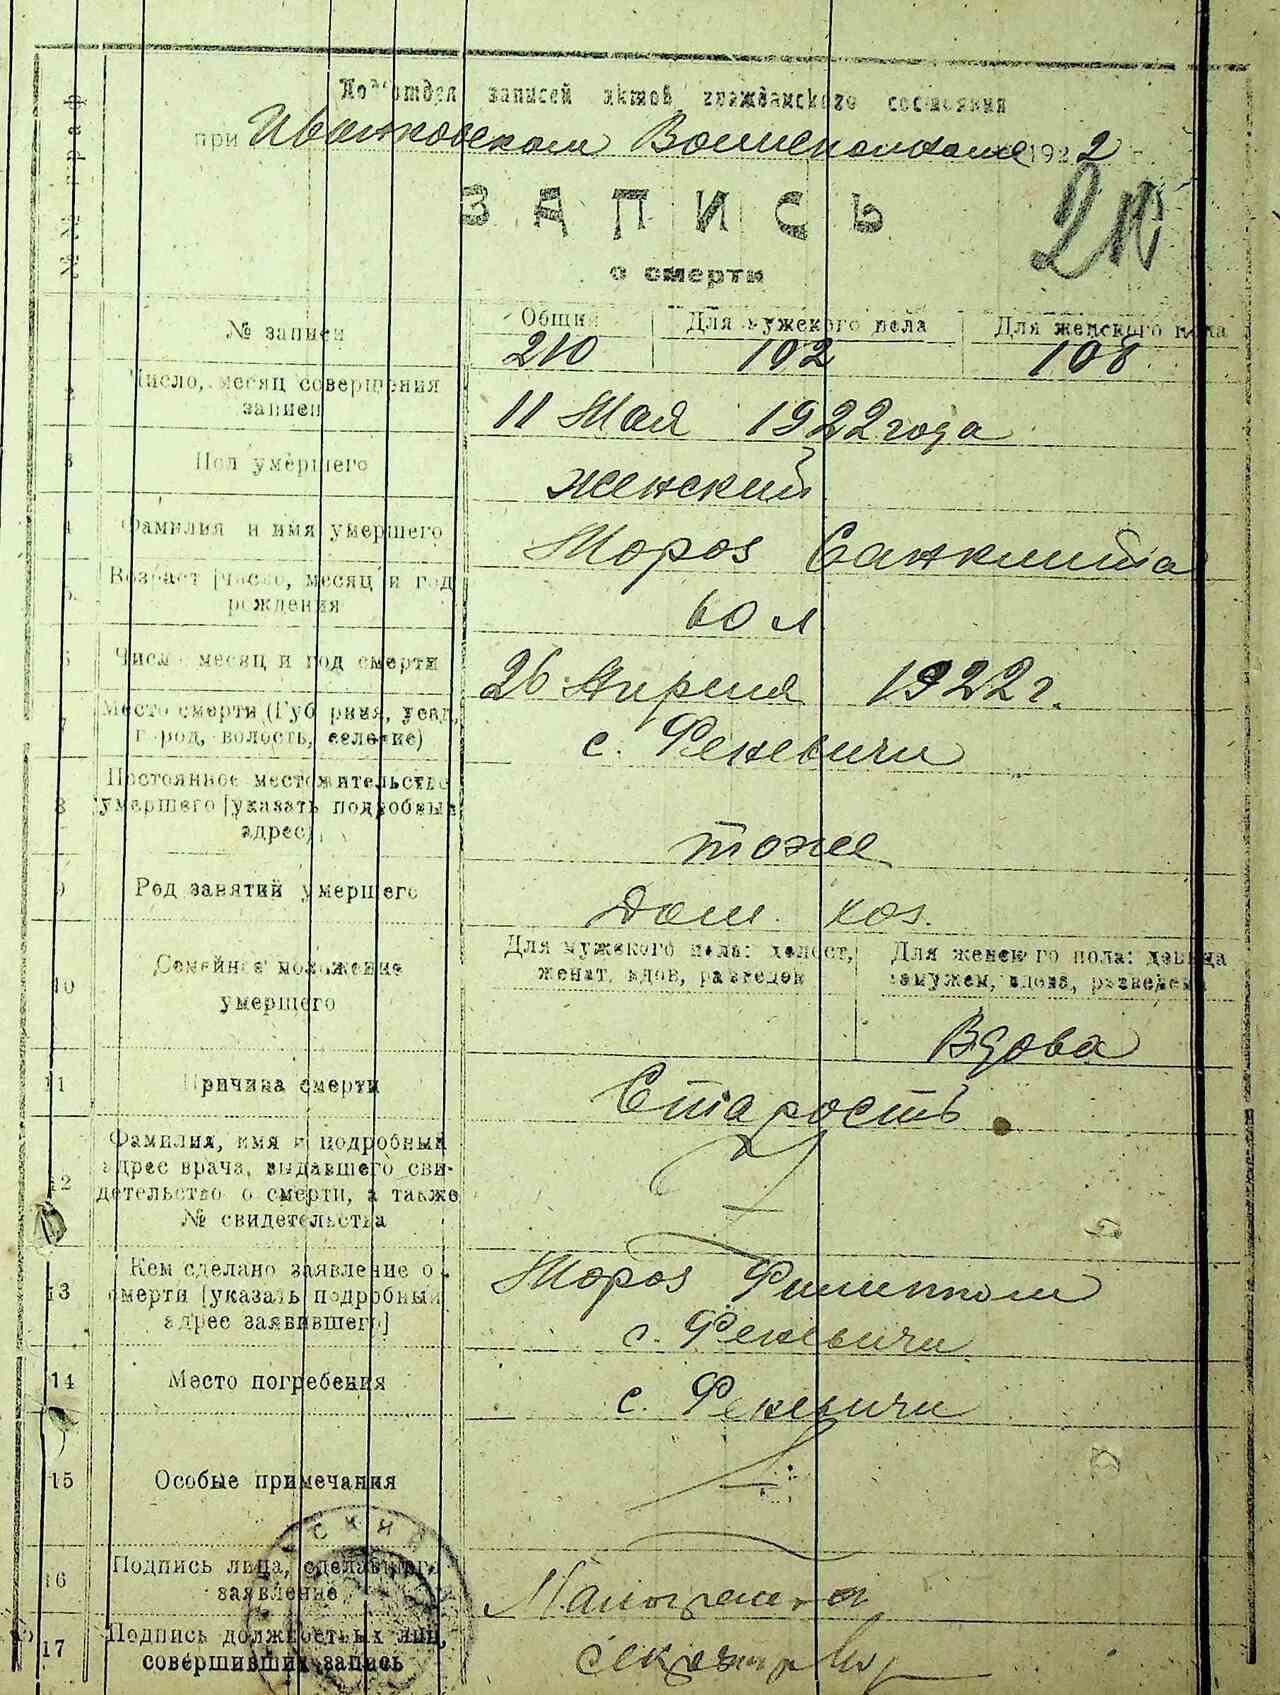 №№ граф
Подотдел записей актов гражданского состояния
при Иваньковском Волисполкоме 1922 г.
ЗАПИСЬ
210
о смерти
№ записи
Общий
Для мужского пола
Для женского пола
210
102
108
2
Число, месяц совершения
записи
11 Мая 1922 года
3
Пол умершего
женский
4
Фамилия и имя умершего
Мороз
5
Возраст [число, месяц и год
рождения
60 л
6
Число месяц и год смерти
26 Апреля 1922 г.
7
Место смерти (Губерния, уезд,
город, волость, селение)
с. Феневичи
8
Постоянное местожительство
умершего [указать подробный
адрес]
тоже
9
Род занятий умершего
Дом. хоз.
10
Семейное положение
умершего
Для мужского пола: холост,
женат, вдов, разведен
Для женского пола: девица
замужем, вдова, разведена
Вдова
11
Причина смерти
Старость
12
Фамилия, имя и подробный
адрес врача, выдавшего сви-
детельство о смерти, а также
№ свидетельства
13
Кем сделано заявление о
смерти [указать подробный
адрес заявившего]
Мороз Филиппом
с. Феневичи
14
Место погребения
с. Феневичи
15
Особые примечания
16
Подпись лица, сделавшего
заявление
17
Подпись должностных лиц,
совершивших запись
секретарь